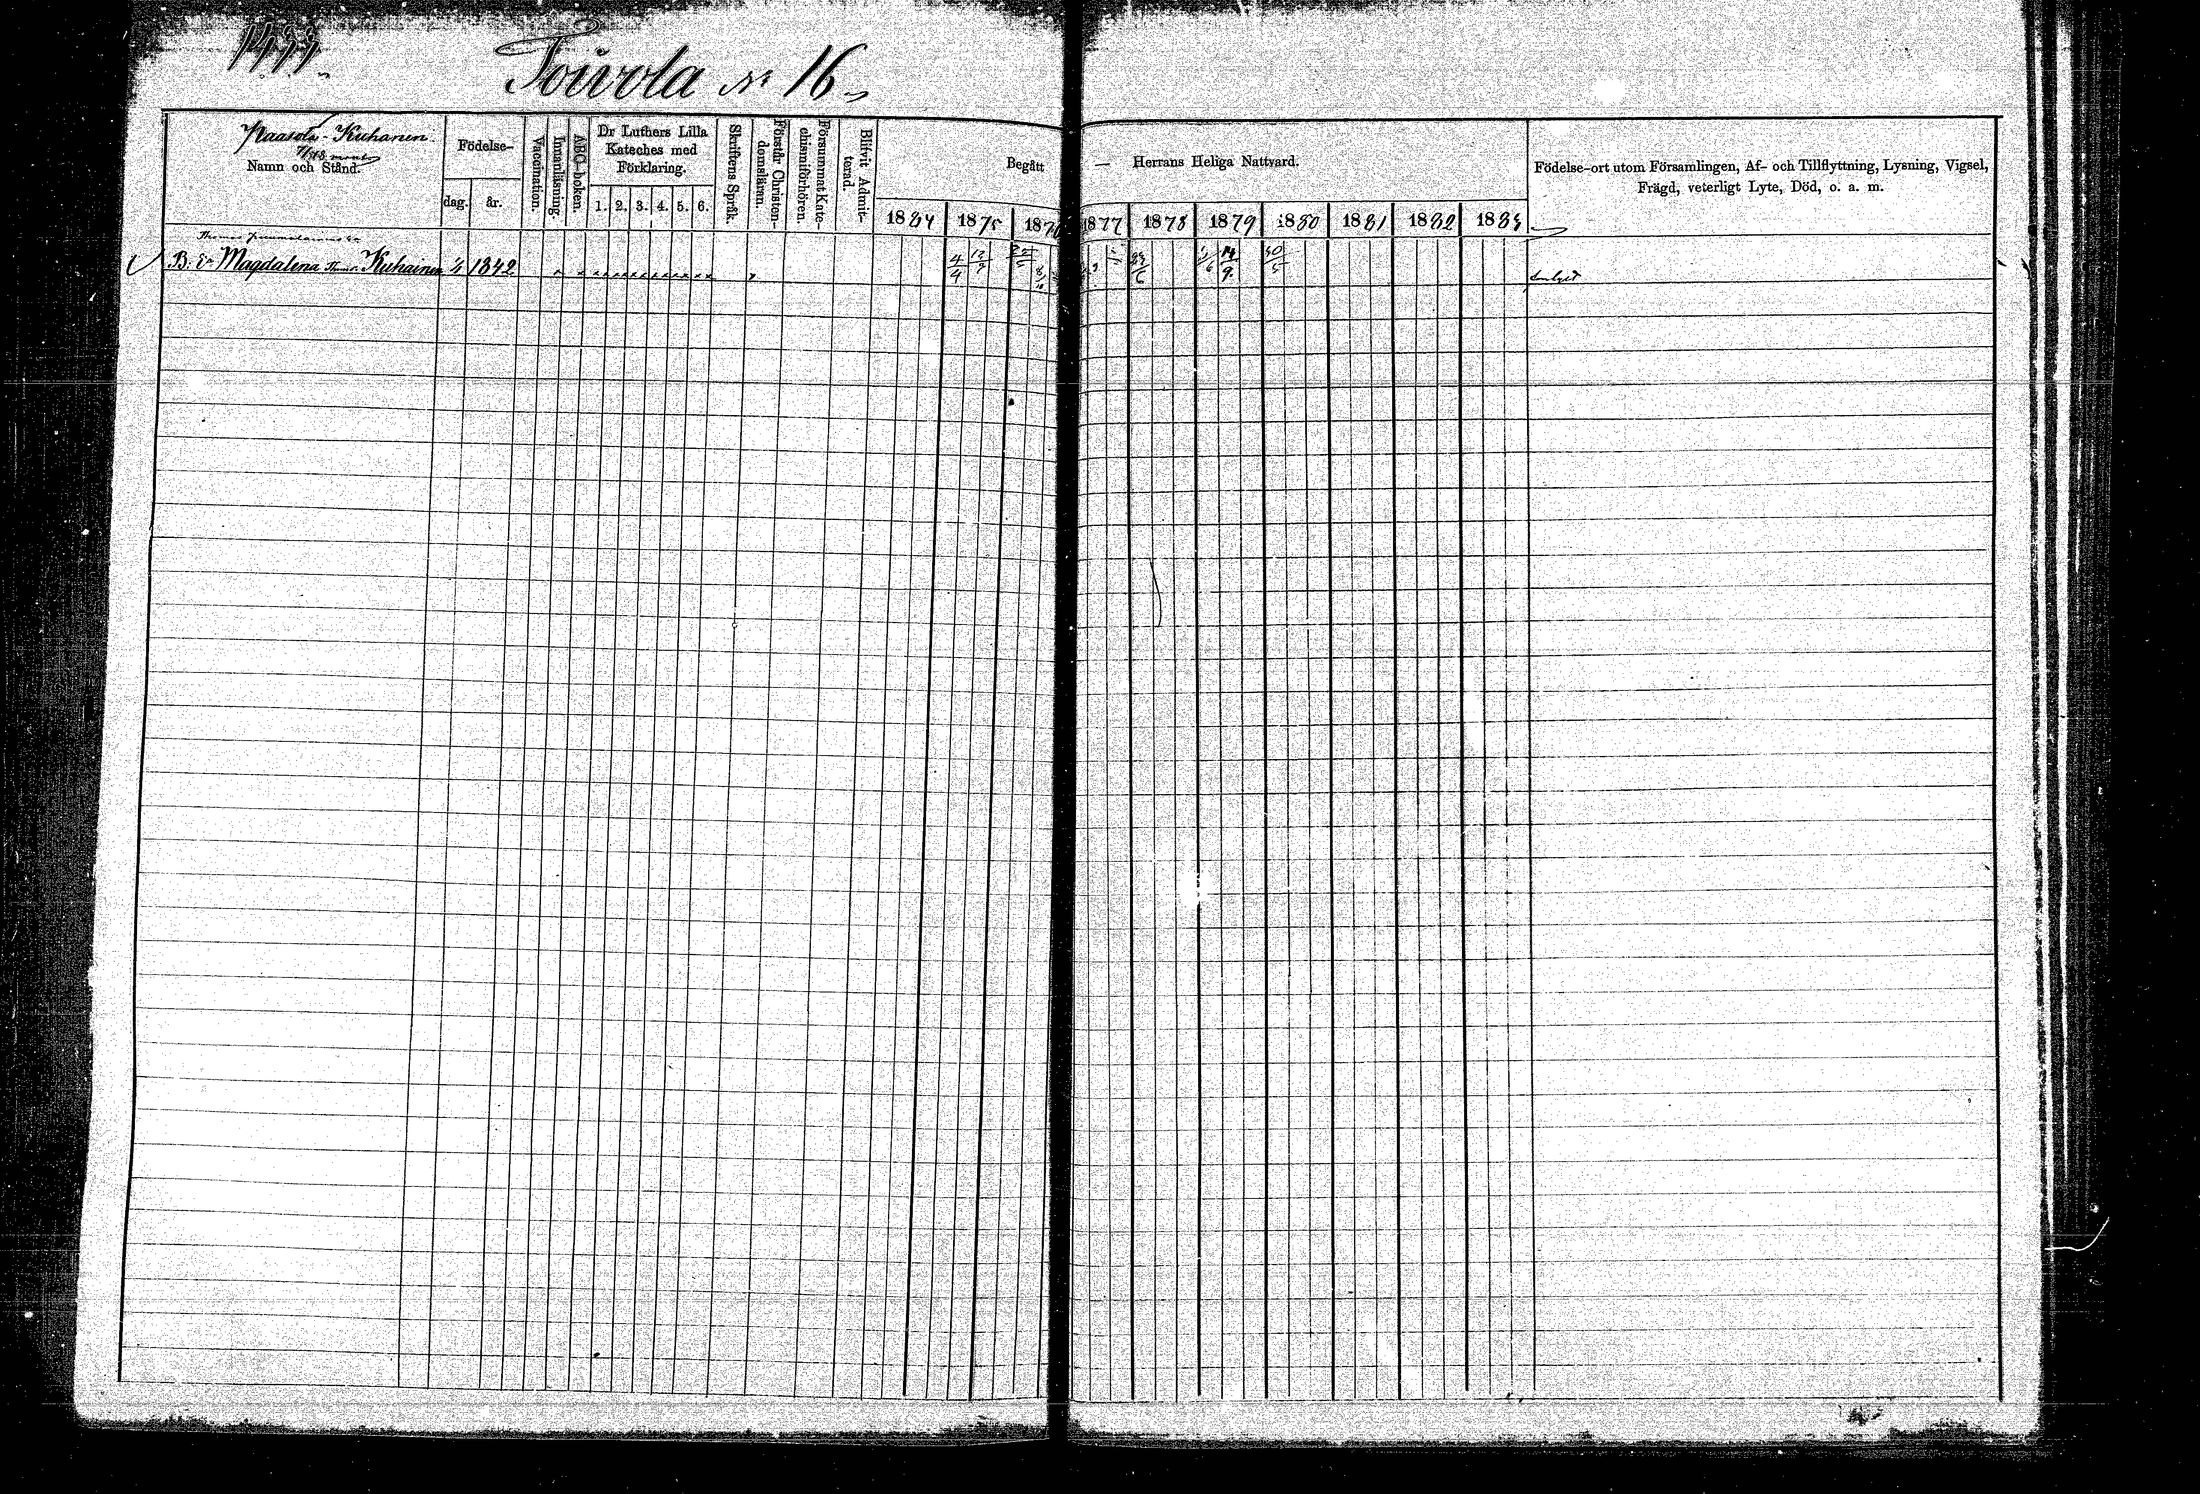 1499
Toivola No 16
Naasola-Kuhanen
Namn och Stånd.
Födelse-
dag.
år.
Vaccination.
Innanläsning.
ABC-boken.
Dr Luthers Lilla
Kateches med
Förklaring.
1. 2. 3. 4. 5. 6.
Skriftens Språk.
Förstår Christen-
domsläran.
Försummat Kate-
chismiförhören.
Blifvit Admit-
terad.
Begått — Herrans Heliga Nattvard.
1884 1875 1876 1877 1878 1879 1880 1881 1882 1883
Födelse-ort utom Församlingen, Af- och Tillflyttning, Lysning, Vigsel,
Frägd, veterligt Lyte, Död, o. a. m.
Thomas
B. Er Magdalena Thom. Kuhainen 1/4 1842 4/4 14/9 30/5